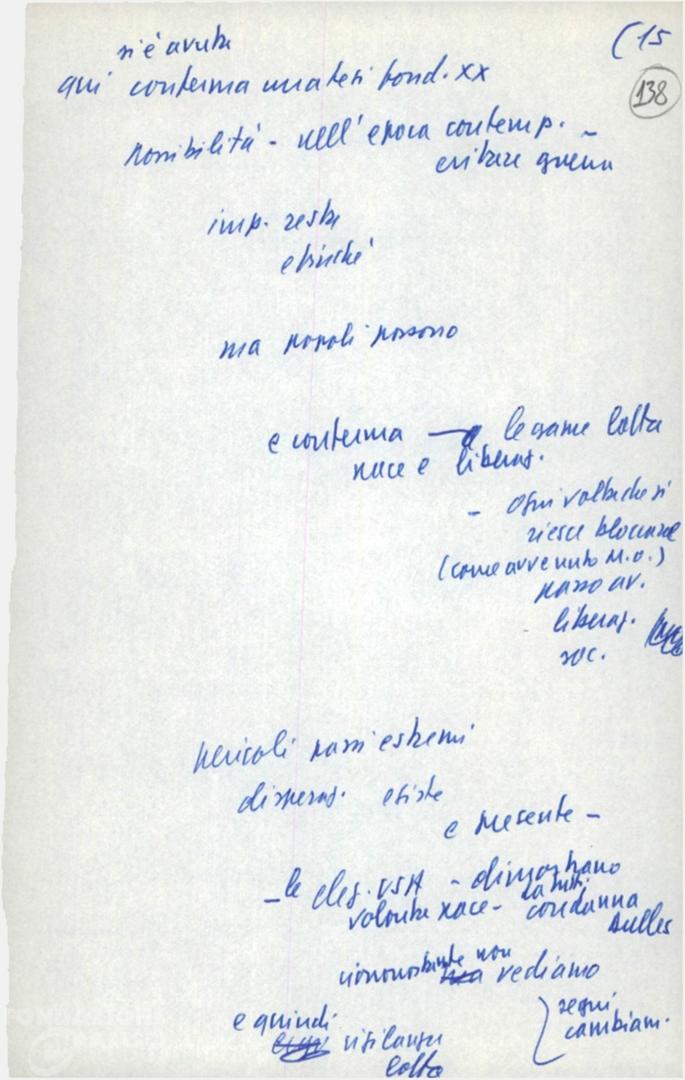 (15
138
si è avuta
qui conferma una tesi fond. xx
possibilità - nell'epoca contemp. -
evitare guerra
imp. resta
finché
ma popoli possono
e conferma → legame lotta
pace e liberaz.
- ogni volta che si
riesce bloccare
(come avvenuto M.O.)
passo av.
liberaz.
soc.
pericoli passi estremi
disperaz. esiste
e presente -
- le elez. USA - dimostrano
volontà pace - condanna
Dulles
ciononostante non
vediamo
segni
cambiam.
e quindi
vigilanza
lotta